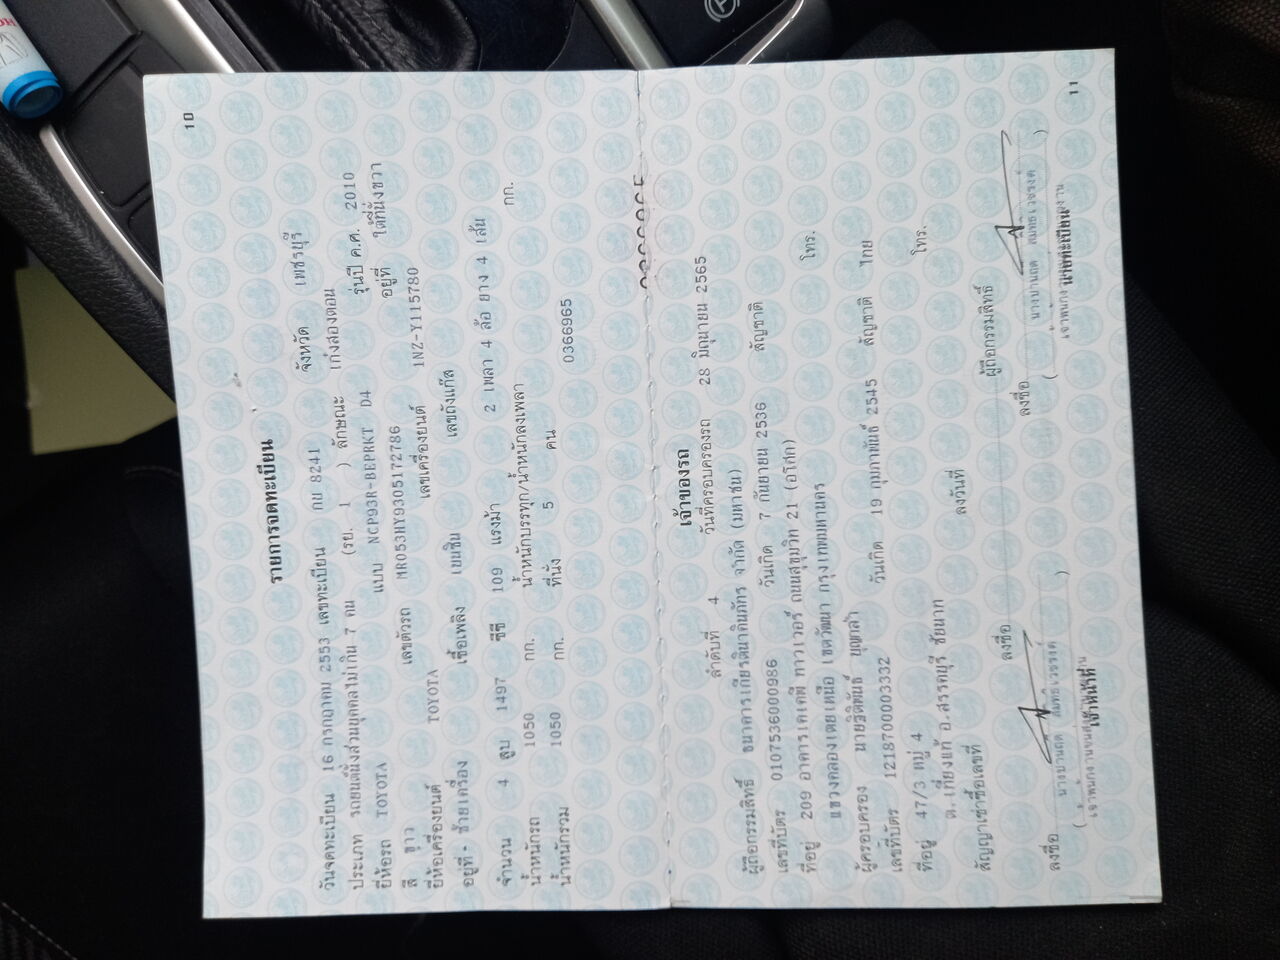 10
รายการจดทะเบียน
วันจดทะเบียน 16 กรกฎาคม 2553 เลขทะเบียน กบ 8241 จังหวัด เพชรบุรี
ประเภท รถยนต์นั่งส่วนบุคคลไม่เกิน 7 คน (รย. 1 ) ลักษณะ เก๋งสองตอน
ยี่ห้อรถ TOYOTA แบบ NCP93R-BEPRKT D4 รุ่นปี ค.ศ. 2010
สี ขาว เลขตัวรถ MR053HY9305172786 อยู่ที่ ใต้ที่นั่งขวา
ยี่ห้อเครื่องยนต์ TOYOTA เลขเครื่องยนต์ 1NZ-Y115780
อยู่ที่ - ซ้ายเครื่อง เชื้อเพลิง เบนซิน เลขถังแก๊ส
จำนวน 4 สูบ 1497 ซีซี 109 แรงม้า 2 เพลา 4 ล้อ ยาง 4 เส้น
น้ำหนักรถ 1050 กก. น้ำหนักบรรทุก/น้ำหนักลงเพลา กก.
น้ำหนักรวม 1050 กก. ที่นั่ง 5 คน 0366965
เจ้าของรถ
ลำดับที่ 4 วันที่ครอบครองรถ 28 มิถุนายน 2565
ผู้ถือกรรมสิทธิ์ ธนาคารเกียรตินาคินภัทร จำกัด (มหาชน)
เลขที่บัตร 0107536000986 วันเกิด 7 กันยายน 2536 สัญชาติ
ที่อยู่ 209 อาคารเคเคพี ทาวเวอร์ ถนนสุขุมวิท 21 (อโศก) โทร.
แขวงคลองเตยเหนือ เขตวัฒนา กรุงเทพมหานคร
ผู้ครอบครอง นายฐิติพันธ์ บุญาล้ำ
เลขที่บัตร 1218700003332 วันเกิด 19 กุมภาพันธ์ 2545 สัญชาติ ไทย
ที่อยู่ 47/3 หมู่ 4 โทร.
ต.เที่ยงแท้ อ.สรรคบุรี ชัยนาท
สัญญาเช่าซื้อเลขที่ ลงวันที่
ลงชื่อ ผู้ถือกรรมสิทธิ์
ลงชื่อ ลงชื่อ
เจ้าหน้าที่ นายทะเบียน
11